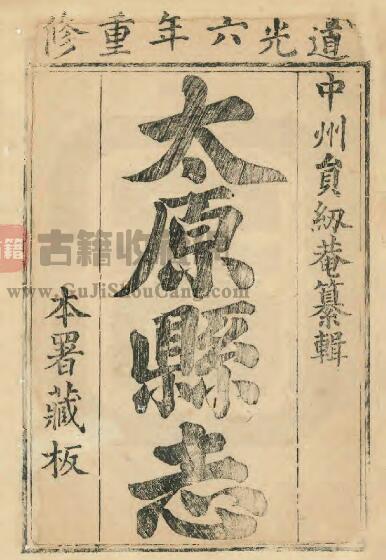 道光六年重修
中州員紉菴纂輯
太原縣志
本署藏板
古籍收
www.GuJiShouCang.com
古籍